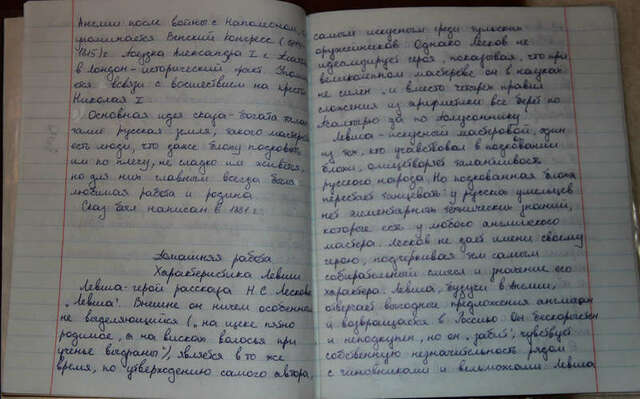 Англии после войны с Наполеоном,
упоминается Венский конгресс (1814-
1815) г. Поездка Александра I с
в Лондон - исторический факт
в связи с восшествием на престол
Николая I
Основная идея сказа - богата талан-
тами русская земля, такого мастерства
есть люди, что даже блоху подковать
им по плечу, не сладко им живётся,
но для них главным всегда были
любимая работа и родина
Сказ был написан в 1881 г.
Домашняя работа
Характеристика Левши
Левша - герой рассказа Н. С. Лескова
„Левша". Внешне он ничем особенным
не выделяющийся („на щеке пятно
родимое, а на висках волосья при
ученье выдраны"), является в то же
время, по утверждению самого автора,
самым искусным среди тульских
оружейников. Однако Лесков не
идеализирует героя, показывая, что при
великолепном мастерстве он в науках
не силен, „и вместо четырех правил
сложения из арифметики все берет по
Псалтырю да по Полусоннику".
Левша - искусный мастеровой, один
из тех, кто участвовал в подковании
блохи, олицетворяет талантливость
русского народа. Но подкованная блоха
перестает танцевать: у русских умельцев
нет элементарных технических знаний,
которые есть у любого английского
мастера. Лесков не дает имени своему
герою, подчеркивая тем самым
собирательный смысл и значение его
характера. Левша, будучи в Англии,
отвергает выгодные предложения англичан
и возвращается в Россию. Он бескорыстен
и неподкупен, но он „забит", чувствует
собственную незначительность рядом
с чиновниками и вельможами. Левша